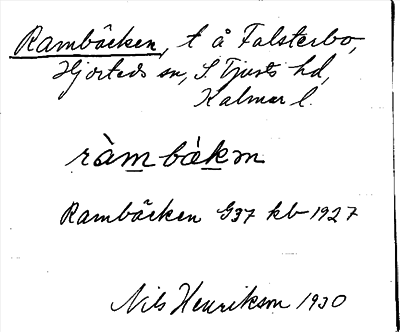 Rambäcken, t å Falsterbo,
Hjorteds sn, S Tjusts hd,
Kalmar l.
ràmbàkm
Rambäcken G37 kb 1927
Nils Henrikson 1930